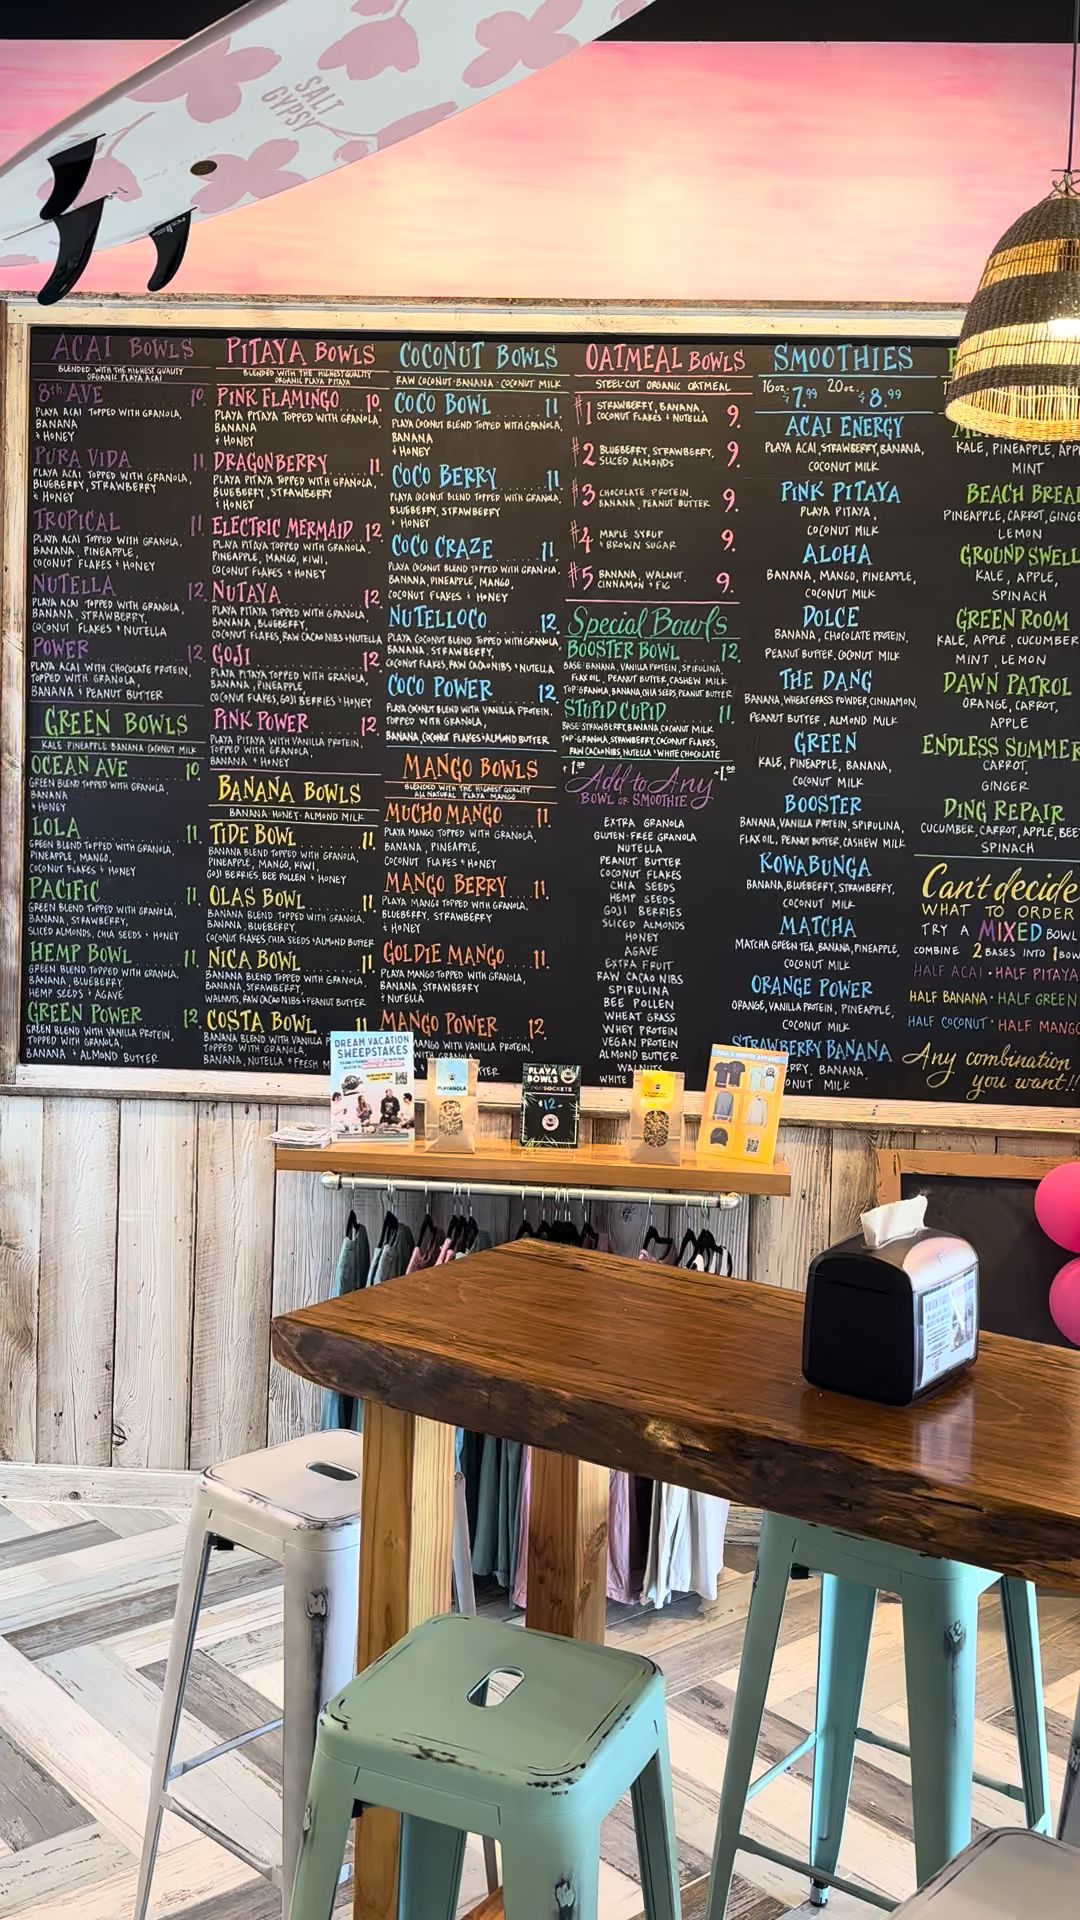 SALT
GYPSY
ACAI BOWLS
BLENDED WITH THE HIGHEST QUALITY
ORGANIC PLAYA ACAI
8th AVE 10.
PLAYA ACAI TOPPED WITH GRANOLA,
BANANA
+ HONEY
PURA VIDA 11.
PLAYA ACAI TOPPED WITH GRANOLA,
BLUEBERRY, STRAWBERRY
+ HONEY
TROPICAL 11
PLAYA ACAI TOPPED WITH GRANOLA,
BANANA, PINEAPPLE,
COCONUT FLAKES + HONEY
NUTELLA 12.
PLAYA ACAI TOPPED WITH GRANOLA,
BANANA, STRAWBERRY,
COCONUT FLAKES + NUTELLA
POWER 12.
PLAYA ACAI WITH CHOCOLATE PROTEIN,
TOPPED WITH GRANOLA,
BANANA + PEANUT BUTTER
GREEN BOWLS
KALE·PINEAPPLE·BANANA·COCONUT MILK
OCEAN AVE 10.
GREEN BLEND TOPPED WITH GRANOLA,
BANANA
+ HONEY
LOLA 11.
GREEN BLEND TOPPED WITH GRANOLA,
PINEAPPLE, MANGO,
COCONUT FLAKES + HONEY
PACIFIC 11.
GREEN BLEND TOPPED WITH GRANOLA,
BANANA, STRAWBERRY,
SLICED ALMONDS, CHIA SEEDS + HONEY
HEMP BOWL 11.
GREEN BLEND TOPPED WITH GRANOLA,
BANANA, BLUEBERRY
HEMP SEEDS + AGAVE
GREEN POWER 12.
GREEN BLEND WITH VANILLA PROTEIN,
TOPPED WITH GRANOLA,
BANANA + ALMOND BUTTER
PITAYA BOWLS
BLENDED WITH THE HIGHEST QUALITY
ORGANIC PLAYA PITAYA
PINK FLAMINGO 10.
PLAYA PITAYA TOPPED WITH GRANOLA,
BANANA
+ HONEY
DRAGONBERRY 11.
PLAYA PITAYA TOPPED WITH GRANOLA,
BLUEBERRY, STRAWBERRY
+ HONEY
ELECTRIC MERMAID 12
PLAYA PITAYA TOPPED WITH GRANOLA,
PINEAPPLE, MANGO, KIWI,
COCONUT FLAKES + HONEY
NUTAYA 12.
PLAYA PITAYA TOPPED WITH GRANOLA,
BANANA, BLUEBERRY,
COCONUT FLAKES, RAW CACAO NIBS + NUTELLA
GOJI 12.
PLAYA PITAYA TOPPED WITH GRANOLA,
BANANA, PINEAPPLE,
COCONUT FLAKES, GOJI BERRIES + HONEY
PINK POWER 12.
PLAYA PITAYA WITH VANILLA PROTEIN,
TOPPED WITH GRANOLA,
BANANA + HONEY
BANANA BOWLS
BANANA·HONEY·ALMOND MILK
TIDE BOWL 11.
BANANA BLEND TOPPED WITH GRANOLA,
PINEAPPLE, MANGO, KIWI,
GOJI BERRIES, BEE POLLEN + HONEY
OLAS BOWL 11.
BANANA BLEND TOPPED WITH GRANOLA,
BANANA, BLUEBERRY,
COCONUT FLAKES, CHIA SEEDS + ALMOND BUTTER
NICA BOWL 11.
BANANA BLEND TOPPED WITH GRANOLA,
BANANA, STRAWBERRY,
WALNUTS, RAW CACAO NIBS + PEANUT BUTTER
COSTA BOWL 11
BANANA BLEND WITH VANILLA
TOPPED WITH GRANOLA,
BANANA, NUTELLA + FRESH
COCONUT BOWLS
RAW COCONUT·BANANA·COCONUT MILK
COCO BOWL 11.
PLAYA COCONUT BLEND TOPPED WITH GRANOLA,
BANANA
+ HONEY
COCO BERRY 11.
PLAYA COCONUT BLEND TOPPED WITH GRANOLA,
BLUEBERRY, STRAWBERRY
+ HONEY
COCO CRAZE 11.
PLAYA COCONUT BLEND TOPPED WITH GRANOLA,
BANANA, PINEAPPLE, MANGO,
COCONUT FLAKES + HONEY
NUTELLOCO 12.
PLAYA COCONUT BLEND TOPPED WITH GRANOLA,
BANANA, STRAWBERRY,
COCONUT FLAKES, RAW CACAO NIBS + NUTELLA
COCO POWER 12.
PLAYA COCONUT BLEND WITH VANILLA PROTEIN,
TOPPED WITH GRANOLA,
BANANA, COCONUT FLAKES + ALMOND BUTTER
MANGO BOWLS
BLENDED WITH THE HIGHEST QUALITY
ALL NATURAL PLAYA MANGO
MUCHO MANGO 11.
PLAYA MANGO TOPPED WITH GRANOLA,
BANANA, PINEAPPLE,
COCONUT FLAKES + HONEY
MANGO BERRY 11.
PLAYA MANGO TOPPED WITH GRANOLA,
BLUEBERRY, STRAWBERRY
+ HONEY
GOLDIE MANGO 11.
PLAYA MANGO TOPPED WITH GRANOLA,
BANANA, STRAWBERRY
+ NUTELLA
MANGO POWER 12.
MANGO WITH VANILLA PROTEIN,
WITH GRANOLA
OATMEAL BOWLS
STEEL-CUT ORGANIC OATMEAL
#1 STRAWBERRY, BANANA, COCONUT FLAKES + NUTELLA 9.
#2 BLUEBERRY, STRAWBERRY, SLICED ALMONDS 9.
#3 CHOCOLATE PROTEIN, BANANA, PEANUT BUTTER 9.
#4 MAPLE SYRUP + BROWN SUGAR 9.
#5 BANANA, WALNUT, CINNAMON + FIG 9.
Special Bowls
BOOSTER BOWL 12.
BASE: BANANA, VANILLA PROTEIN, SPIRULINA,
FLAX OIL, PEANUT BUTTER, CASHEW MILK
TOP: GRANOLA, BANANA, CHIA SEEDS, PEANUT BUTTER
STUPID CUPID 11.
BASE: STRAWBERRY, BANANA, COCONUT MILK
TOP: GRANOLA, STRAWBERRY, COCONUT FLAKES,
RAW CACAO NIBS, NUTELLA + WHITE CHOCOLATE
+1.00 Add to Any +1.00
BOWL OR SMOOTHIE
EXTRA GRANOLA
GLUTEN-FREE GRANOLA
NUTELLA
PEANUT BUTTER
COCONUT FLAKES
CHIA SEEDS
HEMP SEEDS
GOJI BERRIES
SLICED ALMONDS
HONEY
AGAVE
EXTRA FRUIT
RAW CACAO NIBS
SPIRULINA
BEE POLLEN
WHEAT GRASS
WHEY PROTEIN
VEGAN PROTEIN
ALMOND BUTTER
WALNUTS
WHITE
SMOOTHIES
16oz. $7.99 20oz. $8.99
ACAI ENERGY
PLAYA ACAI, STRAWBERRY, BANANA,
COCONUT MILK
PINK PITAYA
PLAYA PITAYA,
COCONUT MILK
ALOHA
BANANA, MANGO, PINEAPPLE,
COCONUT MILK
DOLCE
BANANA, CHOCOLATE PROTEIN,
PEANUT BUTTER, COCONUT MILK
THE DANG
BANANA, WHEATGRASS POWDER, CINNAMON,
PEANUT BUTTER, ALMOND MILK
GREEN
KALE, PINEAPPLE, BANANA,
COCONUT MILK
BOOSTER
BANANA, VANILLA PROTEIN, SPIRULINA,
FLAX OIL, PEANUT BUTTER, CASHEW MILK
KOWABUNGA
BANANA, BLUEBERRY, STRAWBERRY,
COCONUT MILK
MATCHA
MATCHA GREEN TEA, BANANA, PINEAPPLE,
COCONUT MILK
ORANGE POWER
ORANGE, VANILLA PROTEIN, PINEAPPLE,
COCONUT MILK
STRAWBERRY BANANA
BANANA,
COCONUT MILK
KALE, PINEAPPLE, APP
MINT
BEACH BREA
PINEAPPLE, CARROT, GINGE
LEMON
GROUND SWELL
KALE, APPLE,
SPINACH
GREEN ROOM
KALE, APPLE, CUCUMBER
MINT, LEMON
DAWN PATROL
ORANGE, CARROT,
APPLE
ENDLESS SUMMER
CARROT,
GINGER
DING REPAIR
CUCUMBER, CARROT, APPLE, BEET
SPINACH
Can't decide
WHAT TO ORDER
TRY A MIXED BOWL
COMBINE 2 BASES INTO 1 BOW
HALF ACAI · HALF PITAYA
HALF BANANA · HALF GREEN
HALF COCONUT · HALF MANGO
Any combination
you want!!
DREAM VACATION
SWEEPSTAKES
PLAYANOLA
PLAYA
BOWLS
SOCKETS
$12